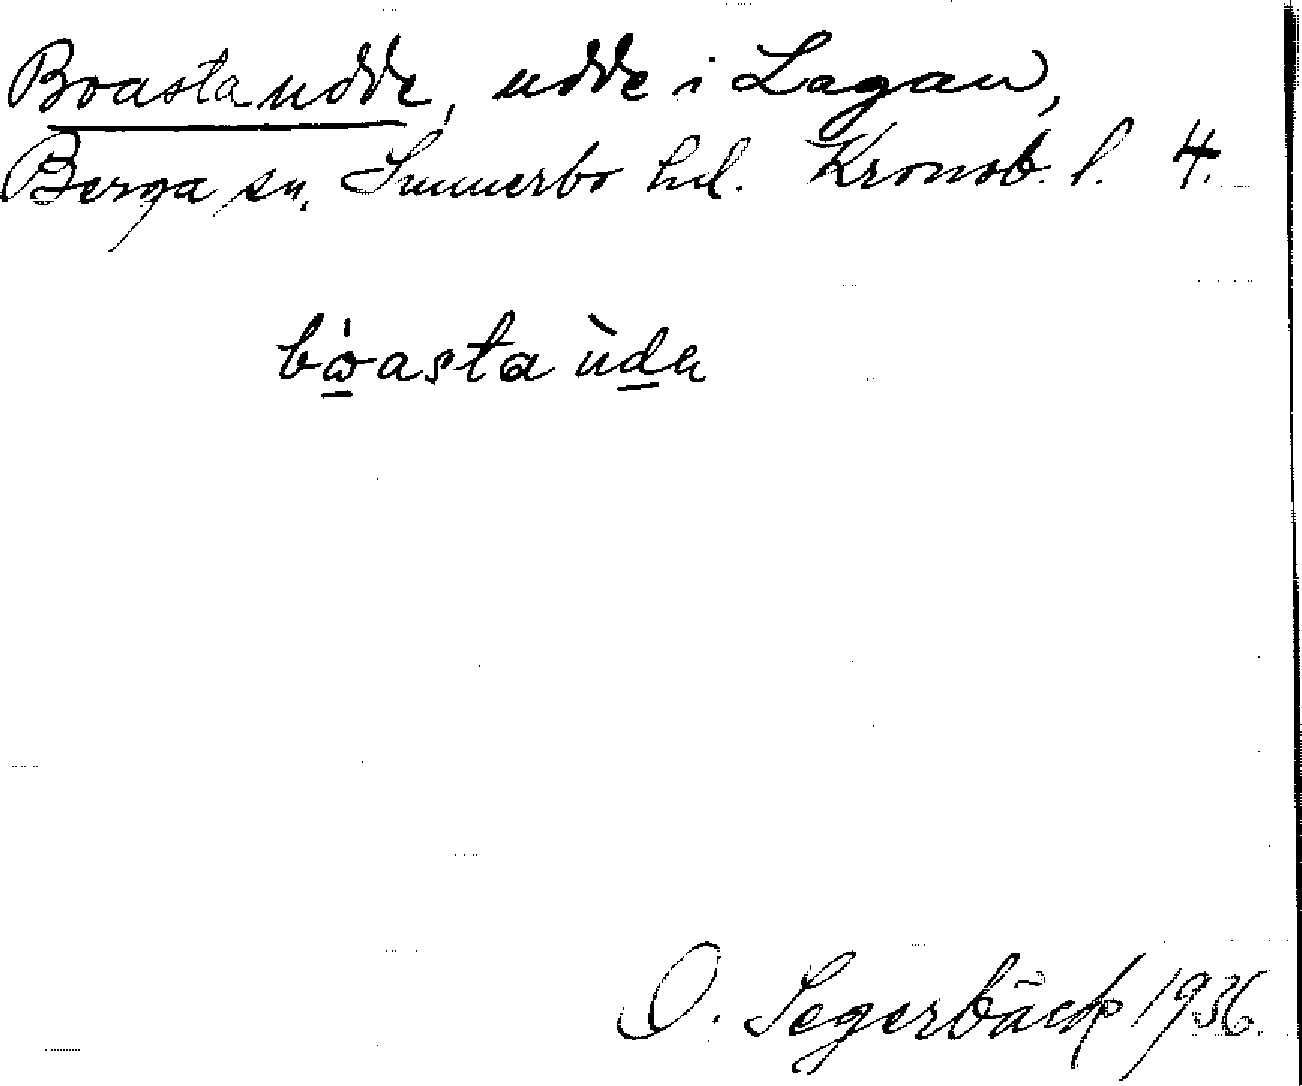 Boastaudde, udde i Lagan,
Berga sn. Sunnerbo hd. Kronob. l. 4.
bòasta ùdu
O. Segerbäck 1936.